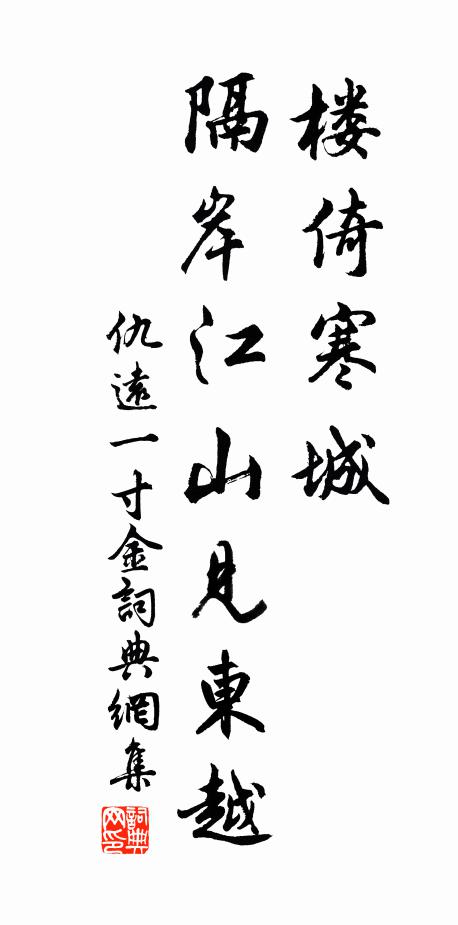 楼倚寒城
隔岸江山見東越
仇遠一寸金詞典網集
詞典网印